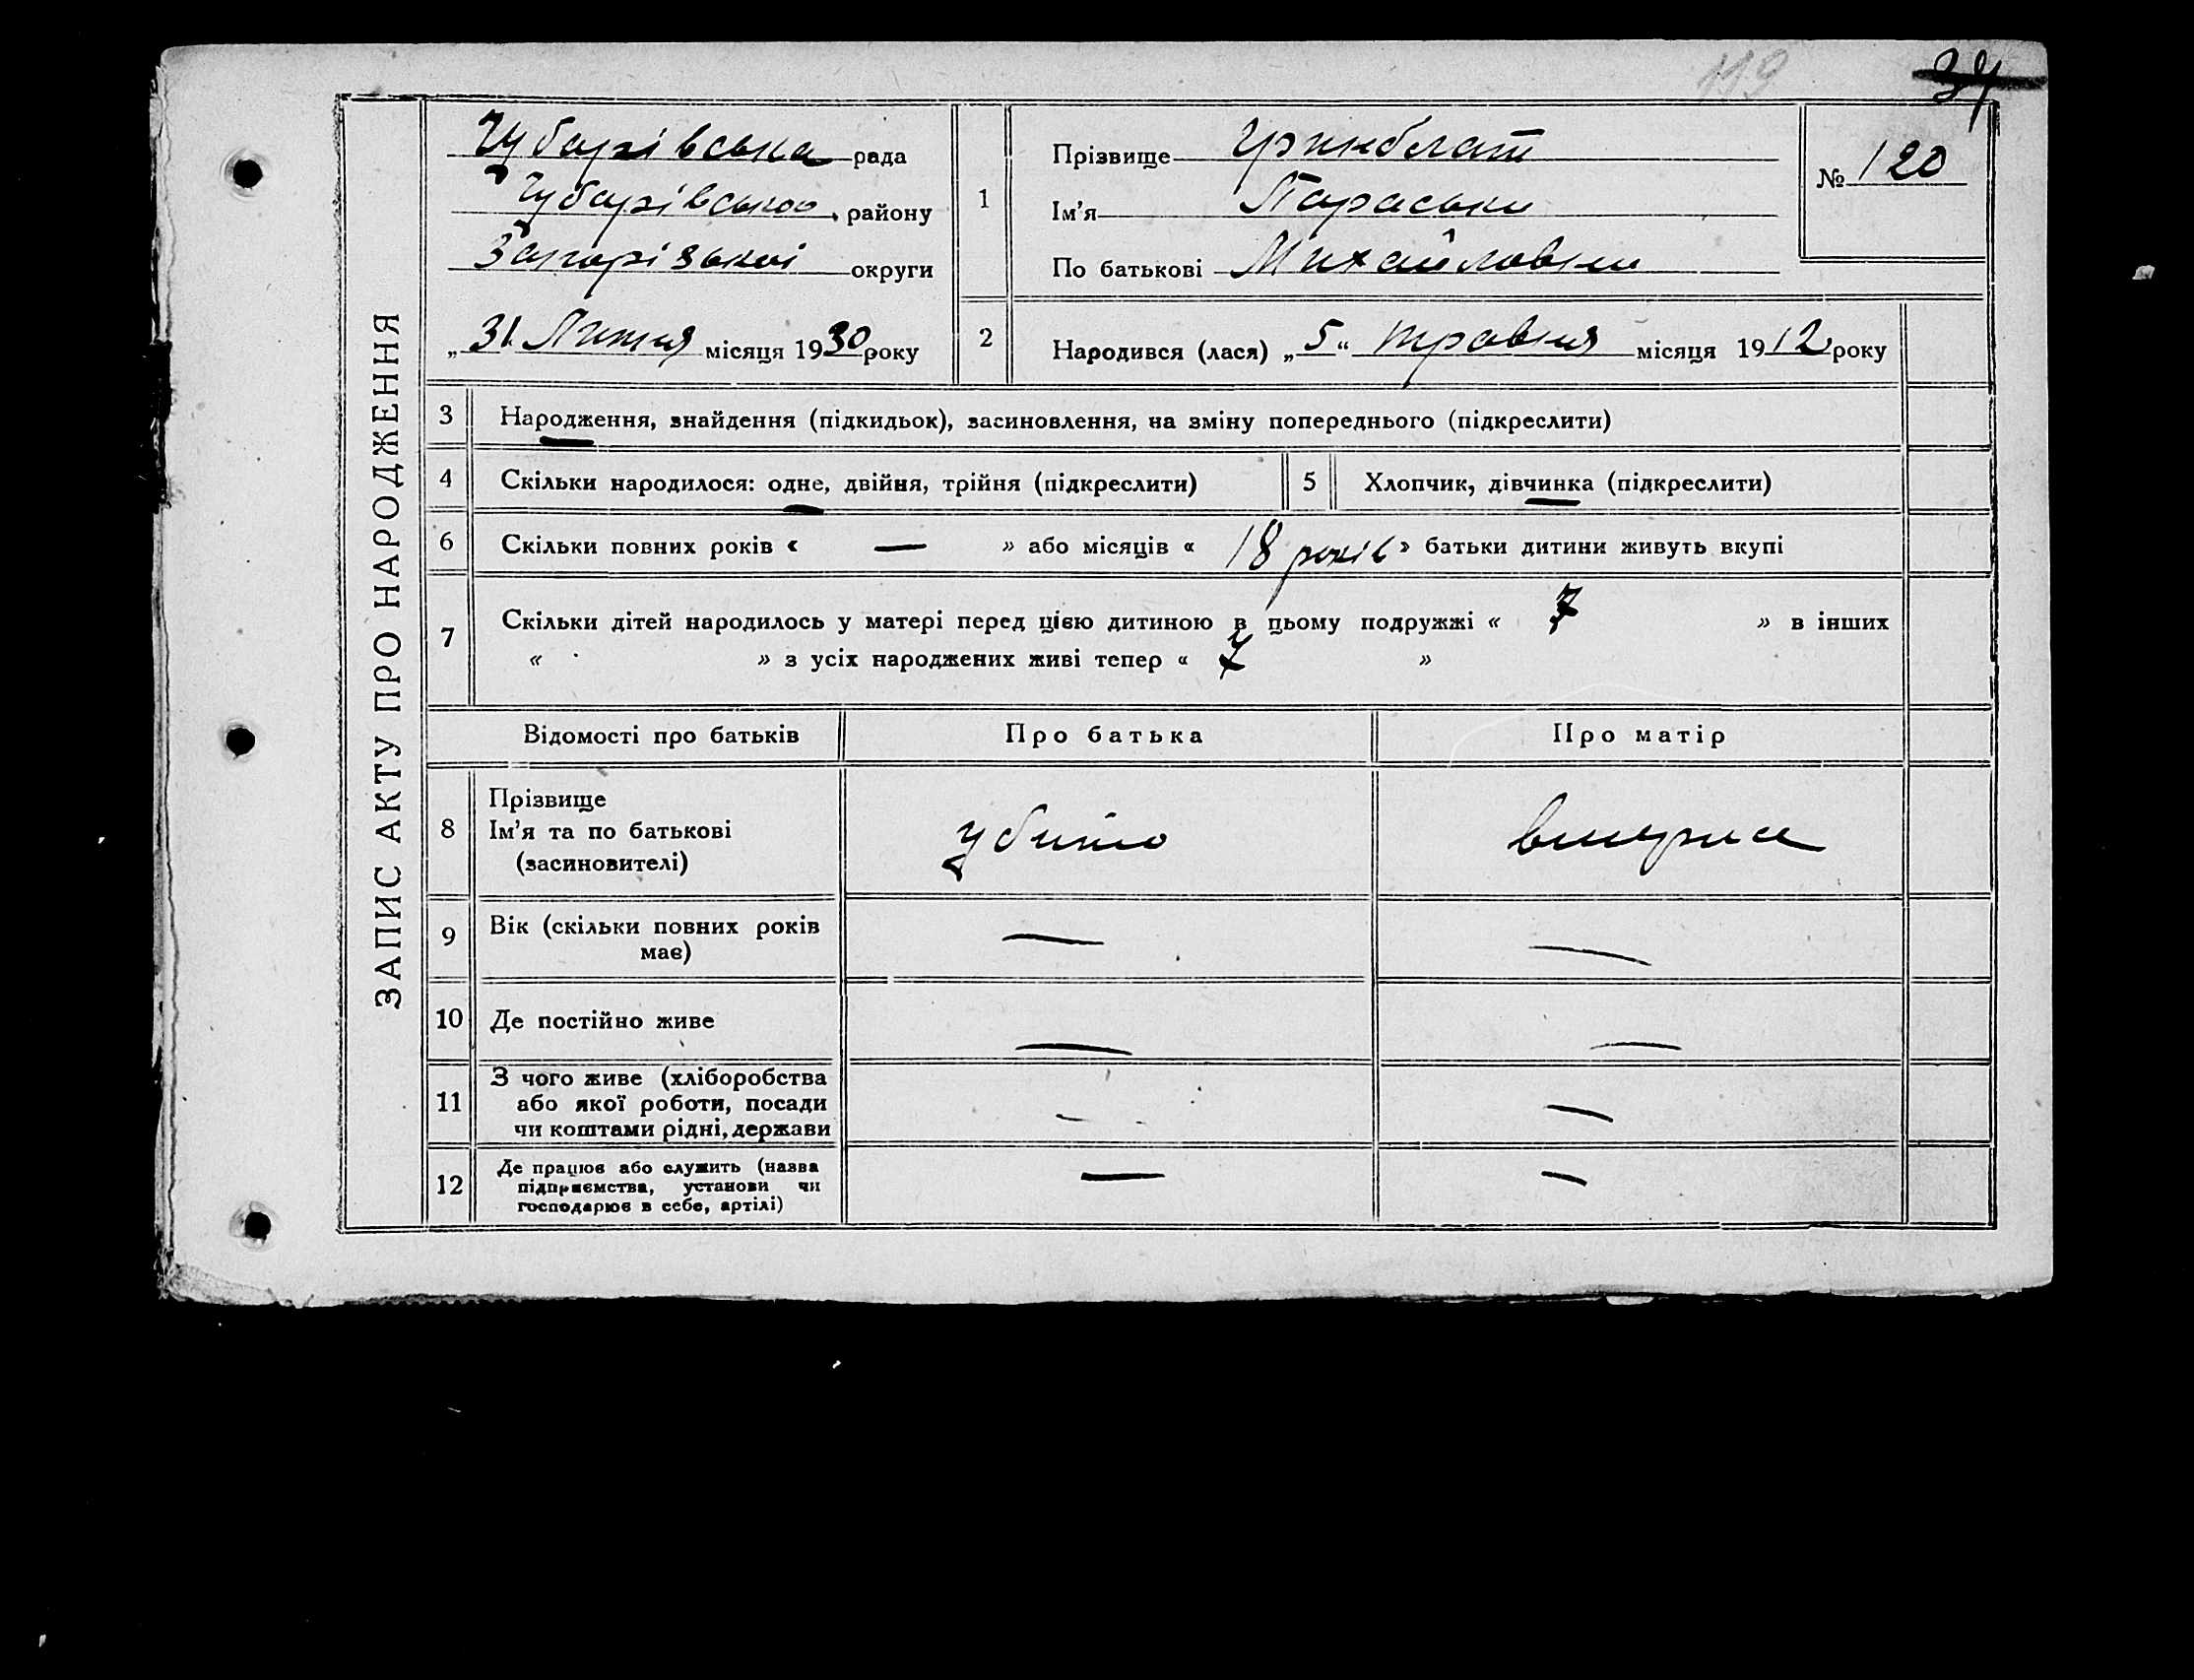 119
34
ЗАПИС АКТУ ПРО НАРОДЖЕННЯ
Чубарівська рада
Чубарівського району
Запорізької округи
„31 Липня місяця 1930 року
1
Прізвище Гринблат
Ім’я Параски
По батькові Михайловни
№ 120
2
Народився (лася) „5“ травня місяця 1912 року
3 Народження, знайдення (підкидьок), засиновлення, на зміну попереднього (підкреслити)
4 Скільки народилося: одне, двійня, трійня (підкреслити)
5 Хлопчик, дівчинка (підкреслити)
6 Скільки повних років « — » або місяців « 18 років » батьки дитини живуть вкупі
7 Скільки дітей народилось у матері перед цією дитиною в цьому подружжі « 7 » в інших
« » з усіх народжених живі тепер « 7 »
Відомості про батьків Про батька Про матір
8 Прізвище
Ім’я та по батькові
(засиновителі)
убито
вмерла
9 Вік (скільки повних років
має)
— —
10 Де постійно живе — —
11 З чого живе (хліборобства
або якої роботи, посади
чи коштами рідні, держави
— —
12 Де працює або служить (назва
підприємства, установи чи
господарює в себе, артілі)
— —